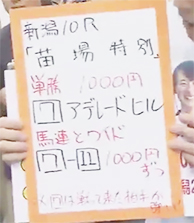 新潟10R
「苗場特別」
単勝 1000円
7 アデレードヒル
馬連とワイド
7-11 1000円
ずつ